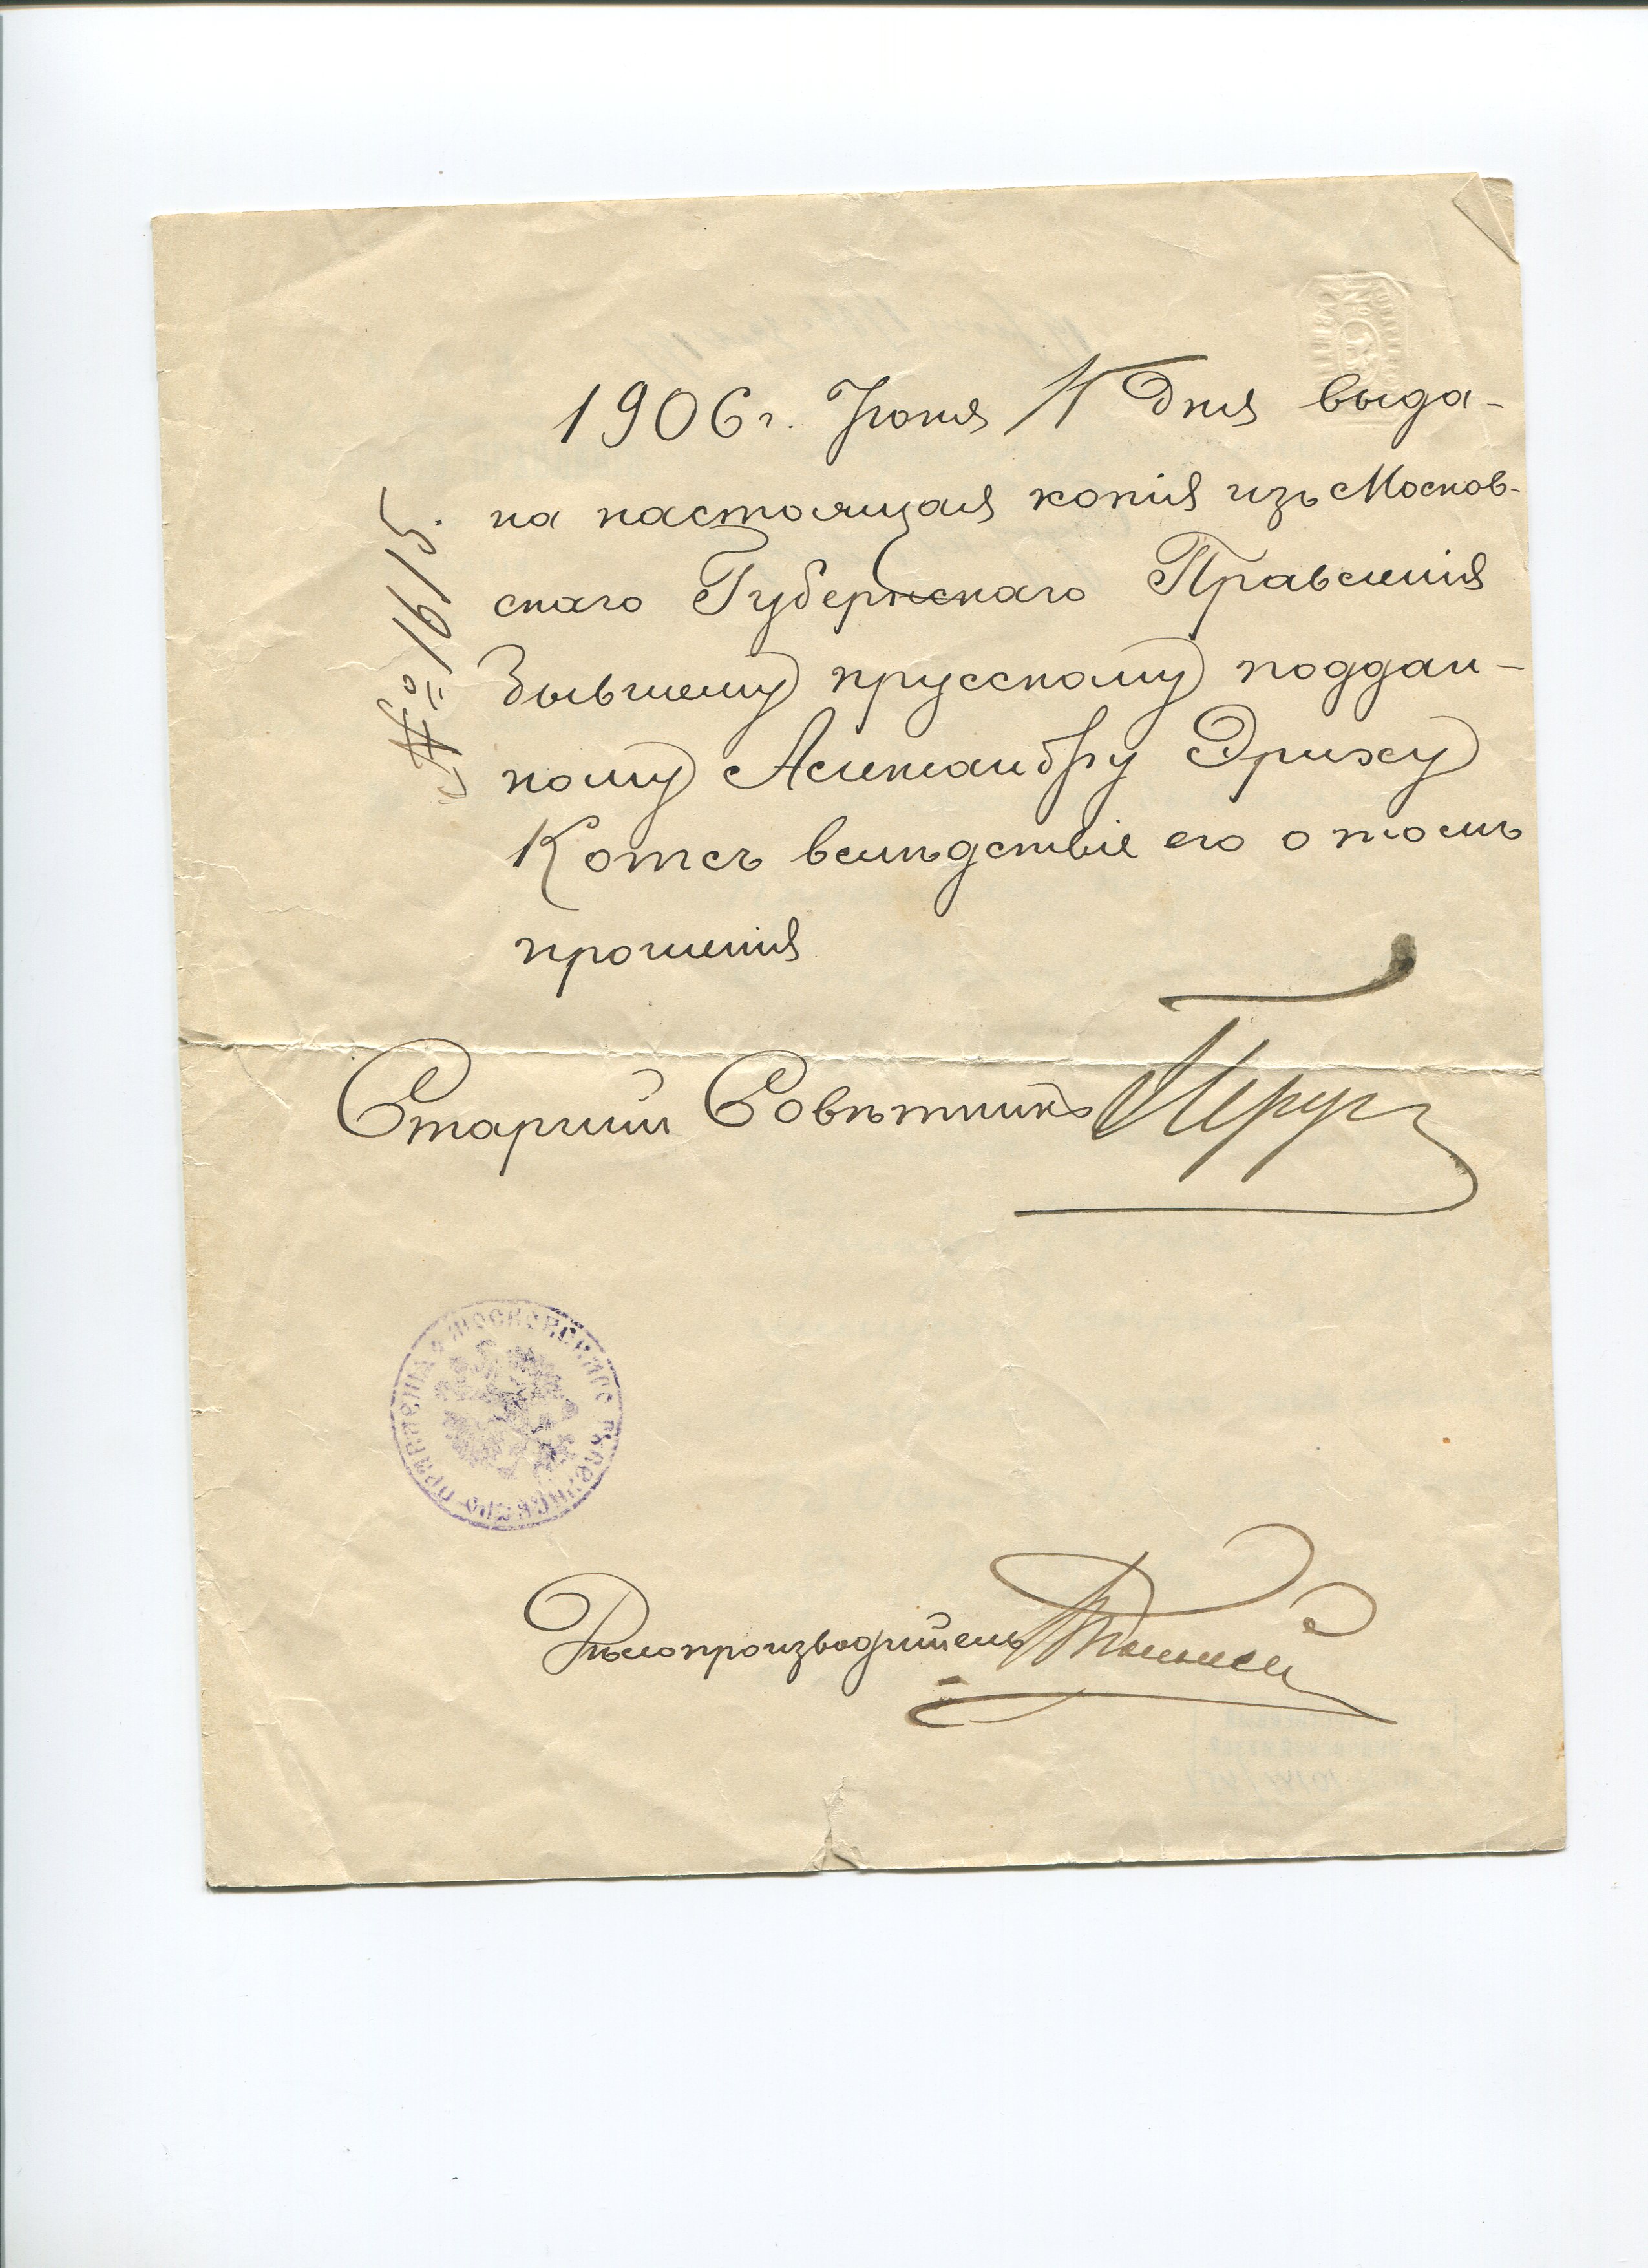 1906 г. Iюня дня выда-
на настоящая копія изъ Москов-
скаго Губернскаго Правленія
бывшему прусскому поддан-
ному Александру Эриху
Котсъ вслѣдствіе его о томъ
прошенія
№ 1615.
Старшій Совѣтникъ
МОСКОВСКАГО ГУБЕРНСКАГО ПРАВЛЕНІЯ
Дѣлопроизводитель